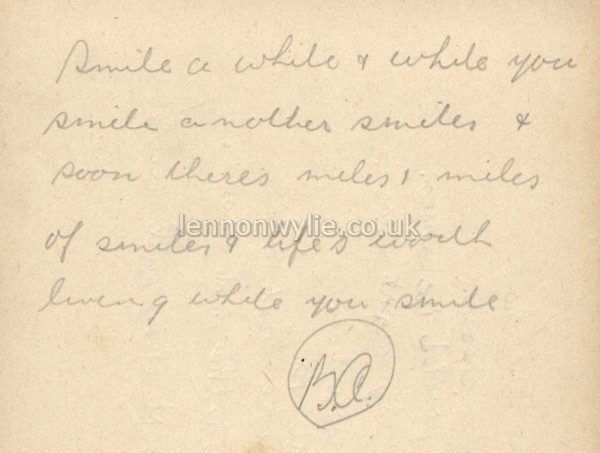 Smile a while & while you
smile another smiles &
soon theres miles & miles
of smiles & life's worth
lennonwylie.co.uk
living while you smile
B.A.